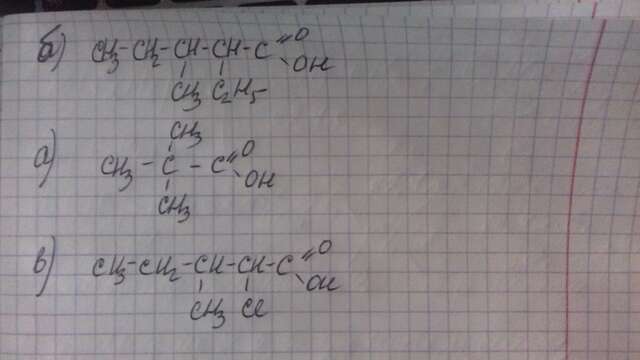 б) CH₃-CH₂-CH-CH-C=O
OH
CH₃ C₂H₅
CH₃
а) CH₃-C-C=O
OH
CH₃
в) CH₃-CH₂-CH-CH-C=O
OH
CH₃ Cl